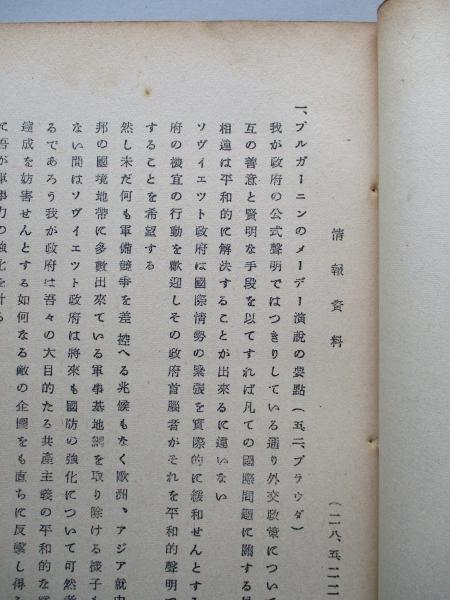 情報資料
(二八、五、二二
一、ブルガーニンのメーデー演説の要點(五、二、プラウダ)
我が政府の公式聲明ではつきりしている通り外交政策につい
互の善意と賢明な手段を以てすれば凡ての國際問題に關する
相違は平和的に解決することが出來るに違いない
ソヴィエツト政府は國際情勢の緊張を實際的に緩和せんとする
府の機宜の行動を歡迎しその政府首腦者がそれを平和的聲明で
することを希望する
然し未だ何も軍備競爭を差控へる兆候もなく歐洲、アジア就中
邦の國境地帶に多數出來ている軍事基地網を取り除ける樣子も
ない間はソヴィエツト政府は將來も國防の強化について可然考
るであろう我が政府は吾々の大目的たる共産主義の平和的な
達成を妨害せんとする如何なる敵の企圖をも直ちに反撃し得る
て吾が軍事力の強化を計る